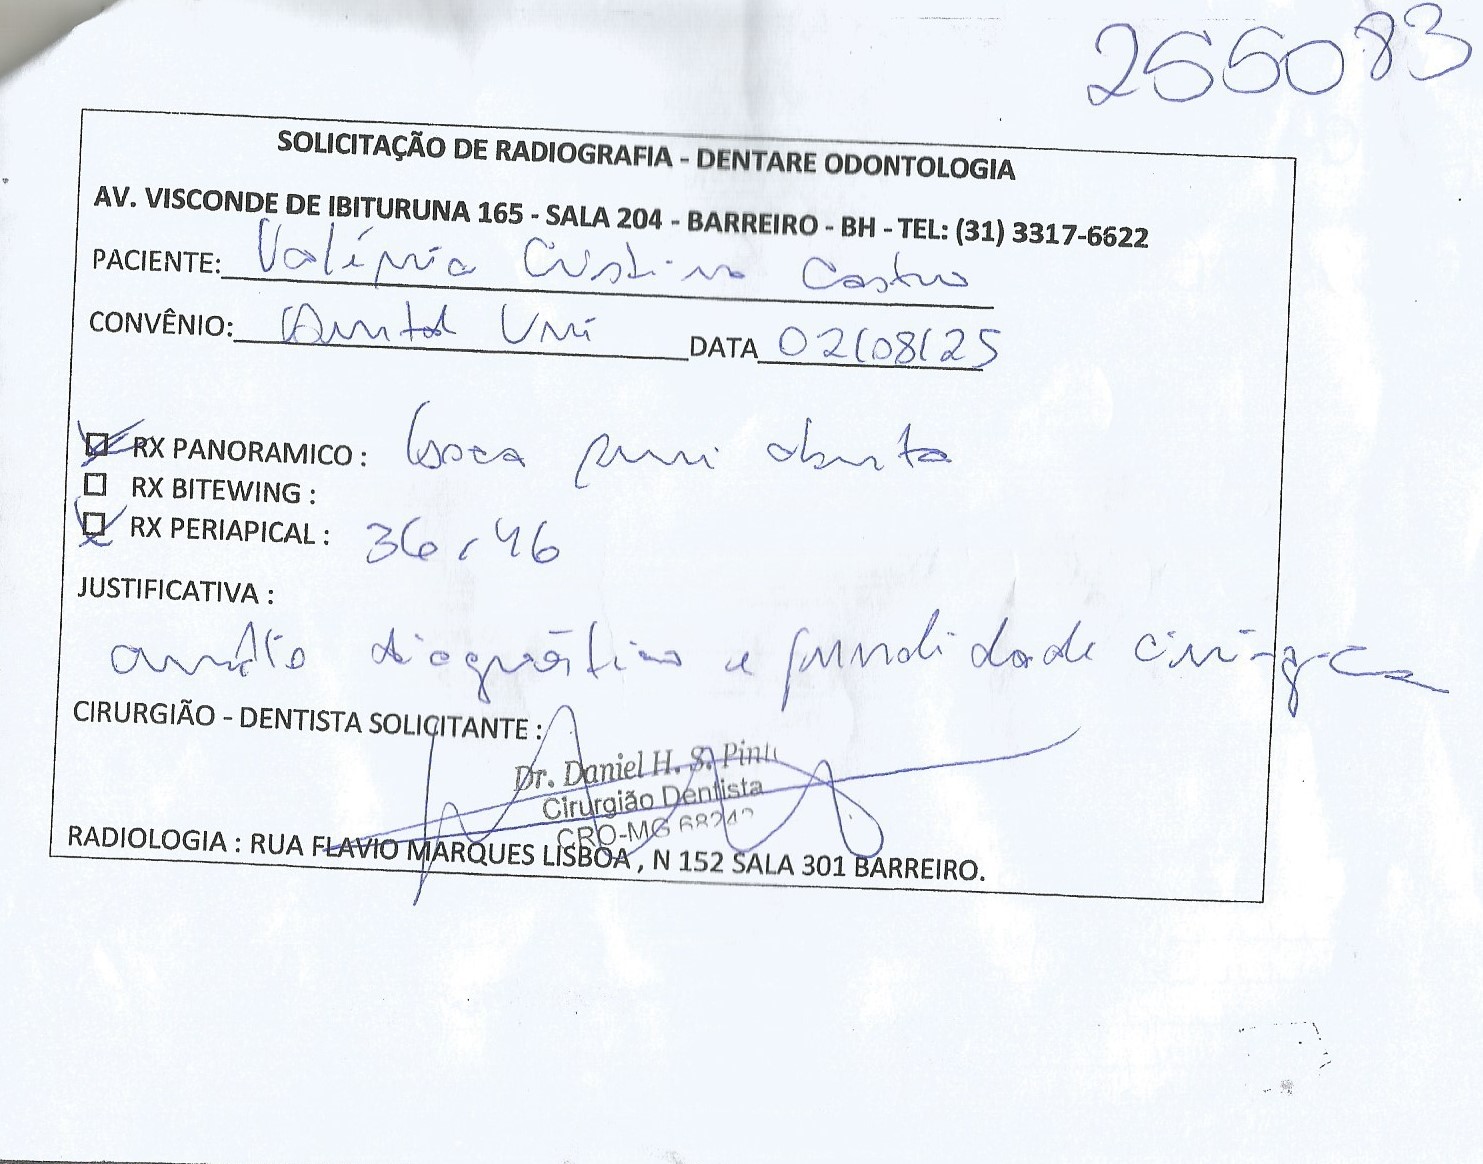 255083
SOLICITAÇÃO DE RADIOGRAFIA - DENTARE ODONTOLOGIA
AV. VISCONDE DE IBITURUNA 165 - SALA 204 - BARREIRO - BH - TEL: (31) 3317-6622
PACIENTE: Valéria Cristina Castro
CONVÊNIO: Dental Uni DATA 02/08/25
RX PANORAMICO : boca semi aberta
RX BITEWING :
RX PERIAPICAL : 36, 46
JUSTIFICATIVA :
diagnóstico e profundidade cirúrgica
CIRURGIÃO - DENTISTA SOLICITANTE :
Dr. Daniel H. S. Pinto
Cirurgião Dentista
CRO-MG
RADIOLOGIA : RUA FLAVIO MARQUES LISBOA , N 152 SALA 301 BARREIRO.